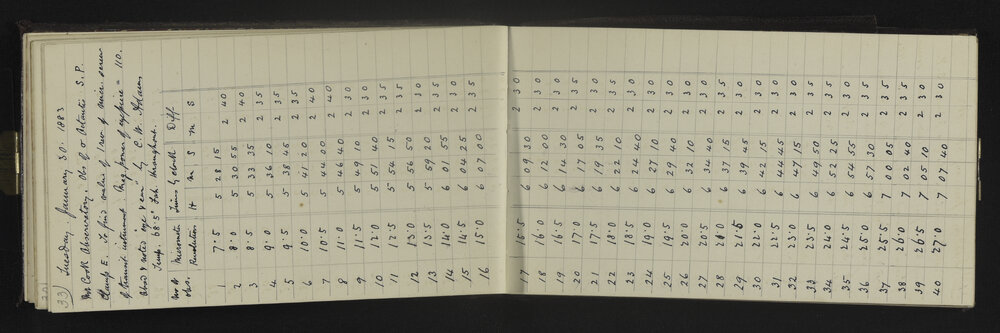 33) Tuesday January 30. 1883
Mt Cook Observatory. Obs of σ Octantis S.P.
Clamp E. To find value of 1 rev of micr. screw
of transit instrument. Mag. power of eyepiece = 110.
obsd & noted "eye & ear" by C. W. Adams
Temp. 68.5° Fah throughout.
No of obs. Micrometer Revolution Time by clock Diff.
H m S m S
1 7·5 5 28 15 2 40
2 8·0 5 30 55 2 40
3 8·5 5 33 35 2 35
4 9·0 5 36 10 2 35
5 9·5 5 38 45 2 35
6 10·0 5 41 20 2 40
7 10·5 5 44 00 2 40
8 11·0 5 46 40 2 30
9 11·5 5 49 10 2 30
10 12·0 5 51 40 2 35
11 12·5 5 54 15 2 35
12 13·0 5 56 50 2 30
13 13·5 5 59 20 2 35
14 14·0 6 01 55 2 30
15 14·5 6 04 25 2 35
16 15·0 6 07 00
17 15·5 6 09 30 2 30
18 16·0 6 12 00 2 30
19 16·5 6 14 30 2 35
20 17·0 6 17 05 2 30
21 17·5 6 19 35 2 35
22 18·0 6 22 10 2 30
23 18·5 6 24 40 2 30
24 19·0 6 27 10 2 30
25 19·5 6 29 40 2 30
26 20·0 6 32 10 2 30
27 20·5 6 34 40 2 35
28 21·0 6 37 15 2 30
29 21·5 6 39 45 2 30
30 22·0 6 42 15 2 30
31 22·5 6 44 45 2 30
32 23·0 6 47 15 2 35
33 23·5 6 49 50 2 35
34 24·0 6 52 25 2 30
35 24·5 6 54 55 2 35
36 25·0 6 57 30 2 35
37 25·5 7 00 05 2 35
38 26·0 7 02 40 2 30
39 26·5 7 05 10 2 30
40 27·0 7 07 40